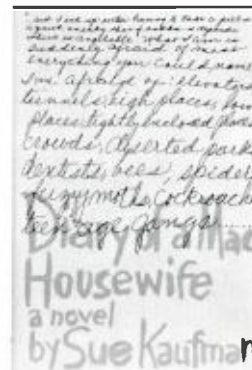 " and I end up either having to take a pill
suddenly afraid of most
everything you could name
I'm afraid of: elevators
tunnels, high places, low
places, tightly enclosed
crowds, deserted park
dentists, bees, spiders
fuzzy moths, cockroach
teenage gangs
Diary of a Mad
Housewife
a novel
by Sue Kaufman